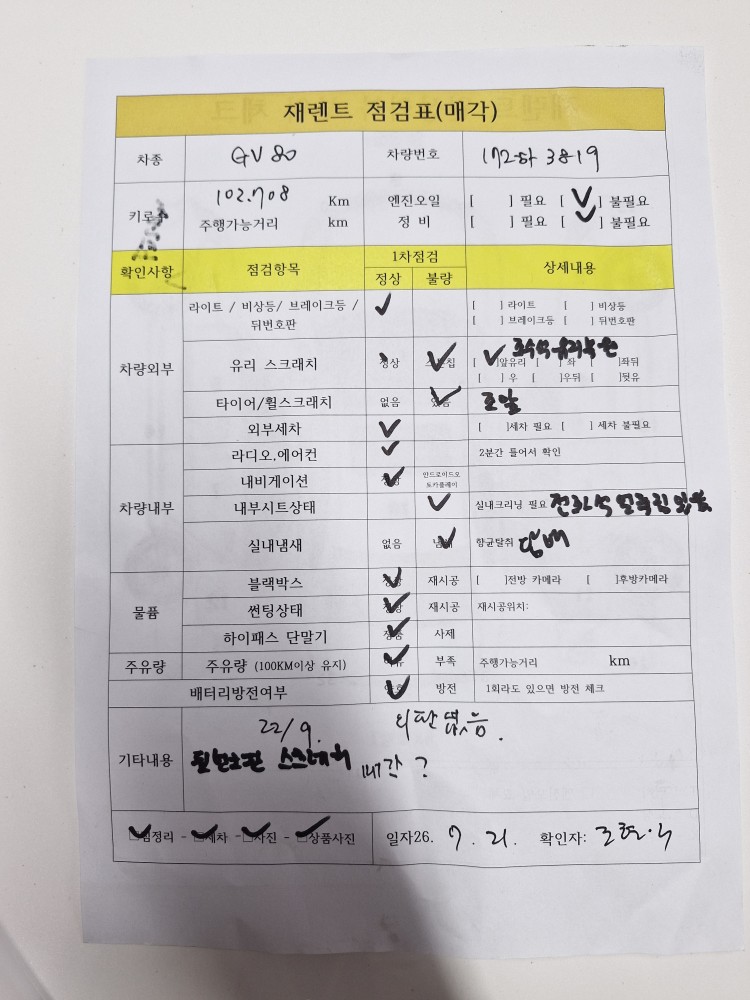 재렌트 점검표(매각)
차종 GV80 차량번호 172하 3819
키로수 102.708 Km 엔진오일 [ ] 필요 [ ✓ ] 불필요
주행가능거리 km 정비 [ ] 필요 [ ✓ ] 불필요
확인사항 점검항목 1차점검 상세내용
정상 불량
차량외부 라이트 / 비상등/ 브레이크등 / 뒤번호판 ✓ [ ] 라이트 [ ] 비상등
[ ] 브레이크등 [ ] 뒤번호판
유리 스크래치 정상 ✓ [ ✓ ]앞유리 [ ] 좌 [ ]좌뒤
[ ] 우 [ ]우뒤 [ ]뒷유
타이어/휠스크래치 없음 있음 ✓
외부세차 ✓ [ ]세차 필요 [ ] 세차 불필요
차량내부 라디오,에어컨 ✓ 2분간 틀어서 확인
내비게이션 정상 ✓ 안드로이드오토카플레이
내부시트상태 ✓ 실내크리닝 필요
실내냄새 없음 냄새 ✓ 향균탈취 담배
물품 블랙박스 정상 ✓ 재시공 [ ]전방 카메라 [ ]후방카메라
썬팅상태 정상 ✓ 재시공 재시공위치:
하이패스 단말기 정품 ✓ 사제
주유량 주유량 (100KM이상 유지) ✓ 부족 주행가능거리 km
배터리방전여부 ✓ 방전 1회라도 있으면 방전 체크
기타내용 22/9. 외판
스크래치 매각 ?
✓ 짐정리 - ✓ 세차 - ✓ 사진 - ✓ 상품사진 일자26. 7. 21. 확인자: